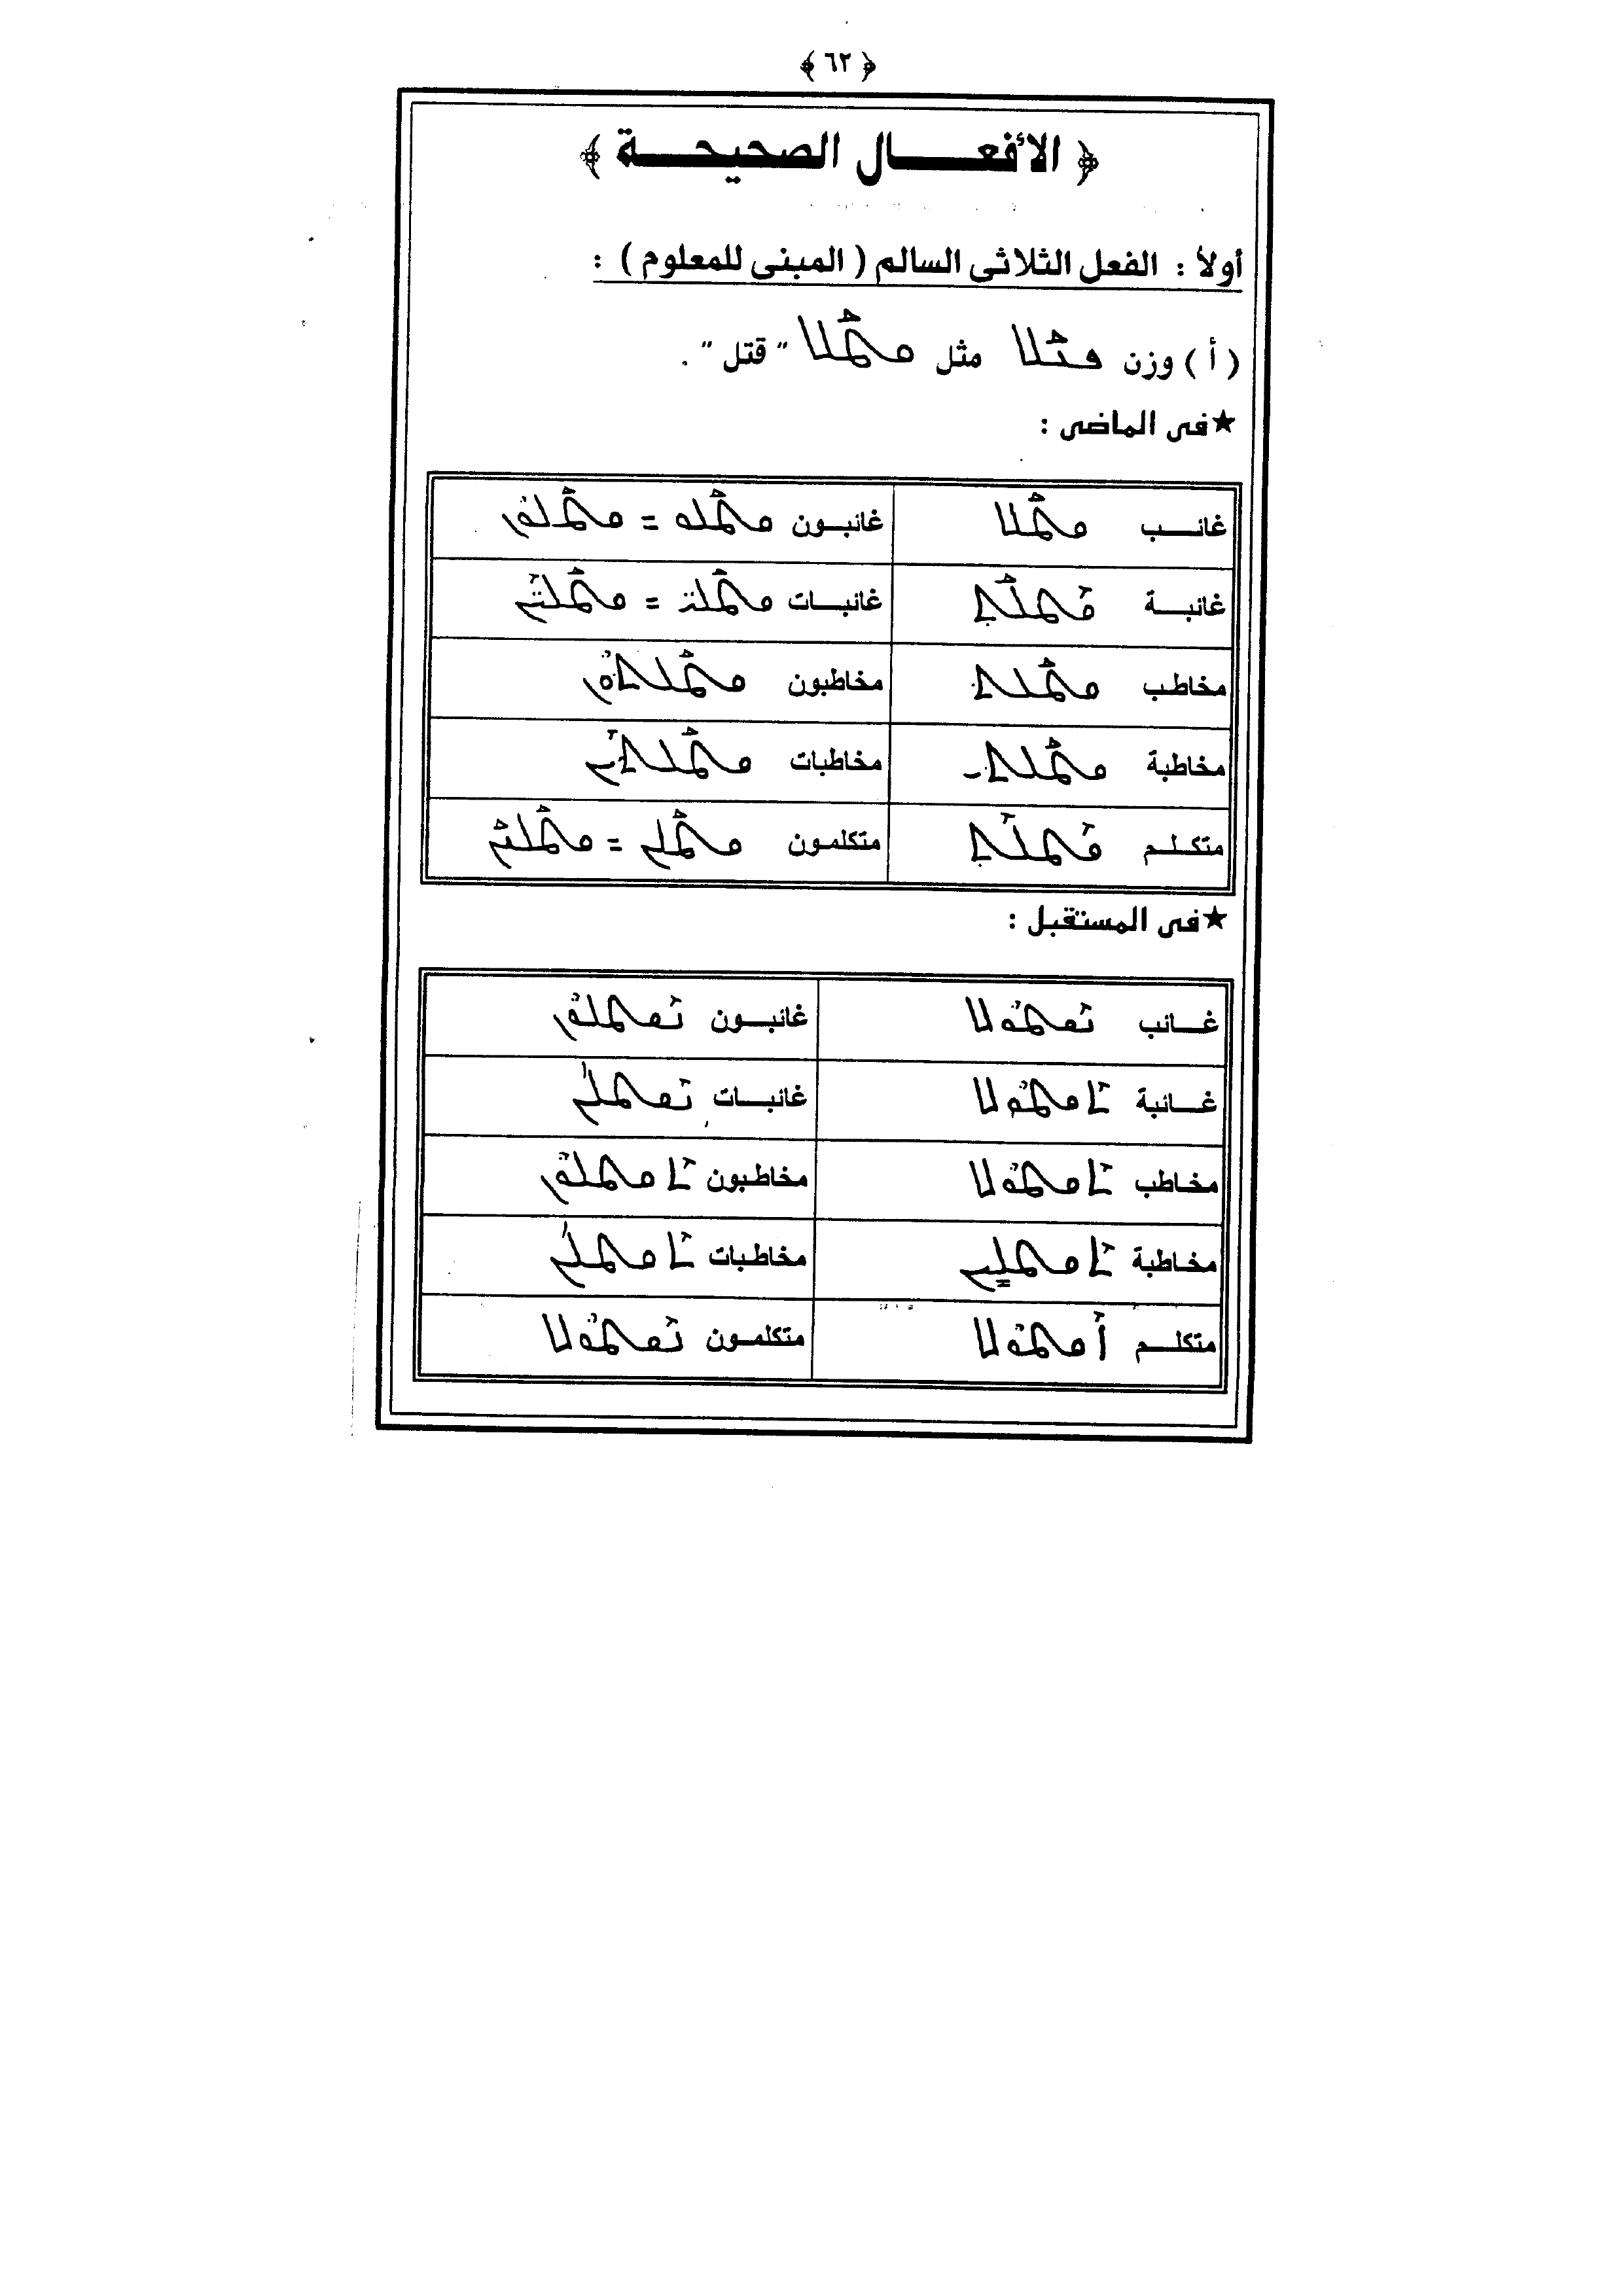 ﴿ ٦٢ ﴾
﴿ الأفعـــال الصحيحـــة ﴾
أولاً : الفعل الثلاثى السالم ( المبنى للمعلوم ) :
( أ ) وزن ܦܥܰܠ مثل ܩܛܰܠ " قتل " .
★ فى الماضى :
غائـــب ܩܛܰܠ غائبـــون ܩܛܰܠܘ = ܩܛܰܠܘܢ
غائبـــة ܩܶܛܠܰܬ غائبـــات ܩܛܰܠܝ = ܩܛܰܠܶܝܢ
مخاطب ܩܛܰܠܬ مخاطبون ܩܛܰܠܬܽܘܢ
مخاطبة ܩܛܰܠܬܝ مخاطبات ܩܛܰܠܬܶܝܢ
متكـلـم ܩܶܛܠܶܬ متكلمـون ܩܛܰܠܢ = ܩܛܰܠܢܰܢ
★ فى المستقبل :
غـــائب ܢܶܩܛܽܘܠ غائبـــون ܢܶܩܛܠܽܘܢ
غـــائبة ܬܶܩܛܽܘܠ غائبـــات ܢܶܩܛܠܳܢ
مخـاطب ܬܶܩܛܽܘܠ مخاطـبون ܬܶܩܛܠܽܘܢ
مخـاطبة ܬܶܩܛܠܝܢ مخاطـبات ܬܶܩܛܠܳܢ
متكلــم ܐܶܩܛܽܘܠ متكلمـون ܢܶܩܛܽܘܠ